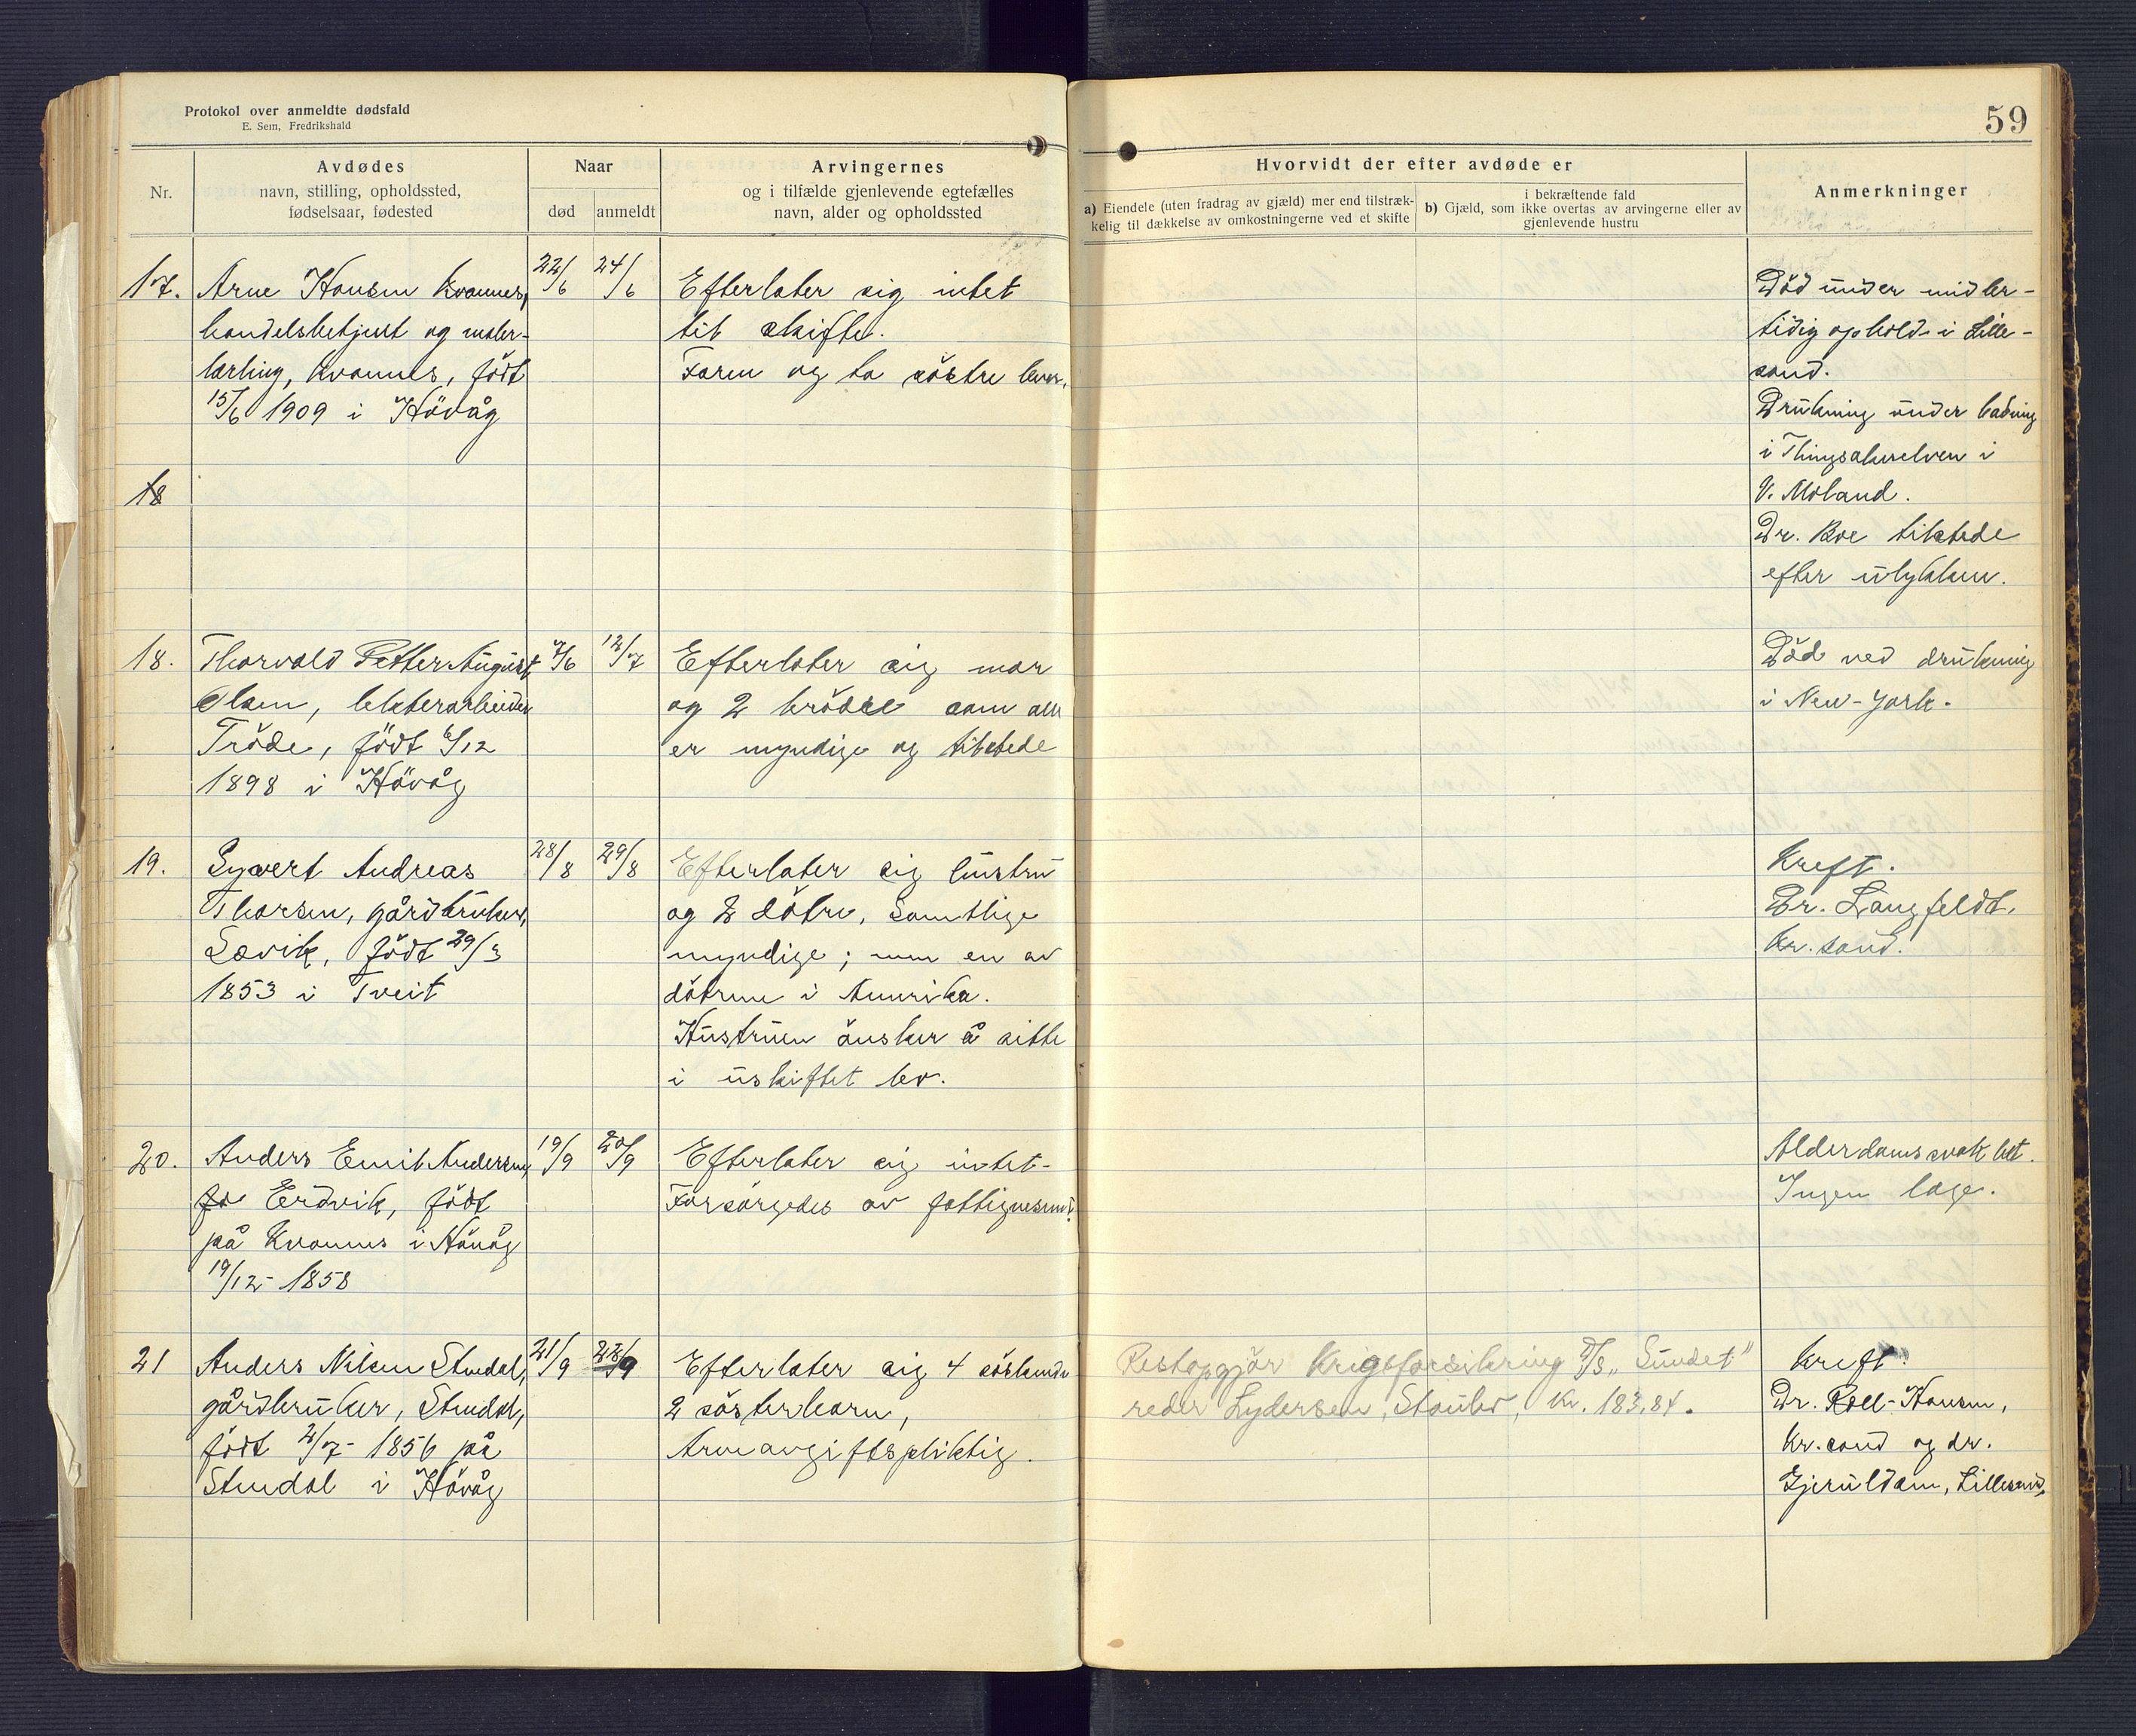 Protokol over anmeldte dødsfald
E. Sem, Fredrikshald
59
Nr.
Avdødes
navn, stilling, opholdssted,
fødselsaar, fødested
Naar
død
anmeldt
Arvingernes
og i tilfælde gjenlevende egtefælles
navn, alder og opholdssted
Hvorvidt der efter avdøde er
a) Eiendele (uten fradrag av gjæld) mer end tilstræk-
kelig til dækkelse av omkostningerne ved et skifte
i bekræftende fald
b) Gjæld, som ikke overtas av arvingerne eller av
gjenlevende hustru
Anmerkninger
17.
Arne Hansen Kvannes,
handelsbetjent og maler-
lærling, Kvannes, född
15/6 1909 i Hövåg
22/6
24/6
Efterlater sig intet
til skifte.
Faren og to söstre lever.
Död under midler-
tidig ophold i Lille-
sand.
Drukning under badning
i Thingsakerelven i
V. Moland.
Dr. Boe tilstede
efter ulykken.
18
18.
Thorvald Petter August
Olsen,
Tröde, födt 6/12
1898 i Hövåg
7/6
12/7
Efterlater sig mor
og 2 brödre som alle
er myndige og tilstede
Död ved drukning
i New-York.
19.
Syvert Andreas
Thorsen, gårdbruker,
Sævik, födt 29/3
1853 i Tveit
28/8
29/8
Efterlater sig hustru
og 2 dötre, samtlige
myndige; men en av
dötrene i Amerika.
Hustruen önsker å sitte
i uskiftet bo.
Kreft.
Dr. Langfeldt,
Kr. sand.
20.
Anders Emil Andersen,
Eidvik, födt
på Kvannes i Hövåg
19/12- 1858
19/9
20/9
Efterlater sig intet-
Forsörgedes av fattigvesenet.
Alderdomssvakhet.
Ingen læge.
21
Anders Nilsen Stendal,
gårdbruker, Stendal,
födt 2/7- 1856 på
Stendal i Hövåg
21/9
22/9
Efterlater sig 4 söskende
2 sösterbarn,
Arveavgiftspliktig.
Restopgjör Krigsforsikring D/S „Sundet"
reder Lydersen, kr. 183,84.
Kreft.
Dr. Roll-Hansen,
Kr.sand og dr.
Gjeruldsen, Lillesand.